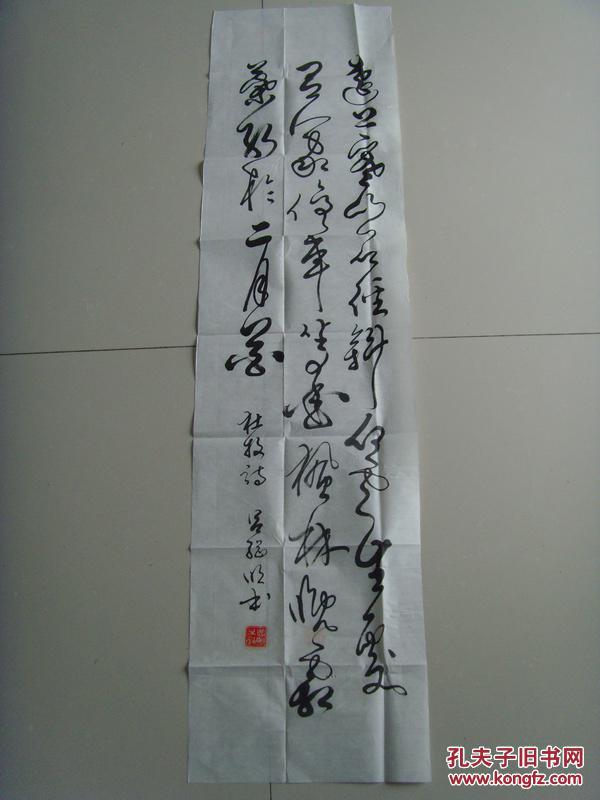 遠上寒山石徑斜白雲生處
有人家停車坐愛楓林晚霜
葉紅於二月花
杜牧詩 吕明书
孔夫子旧书网
www.kongfz.com